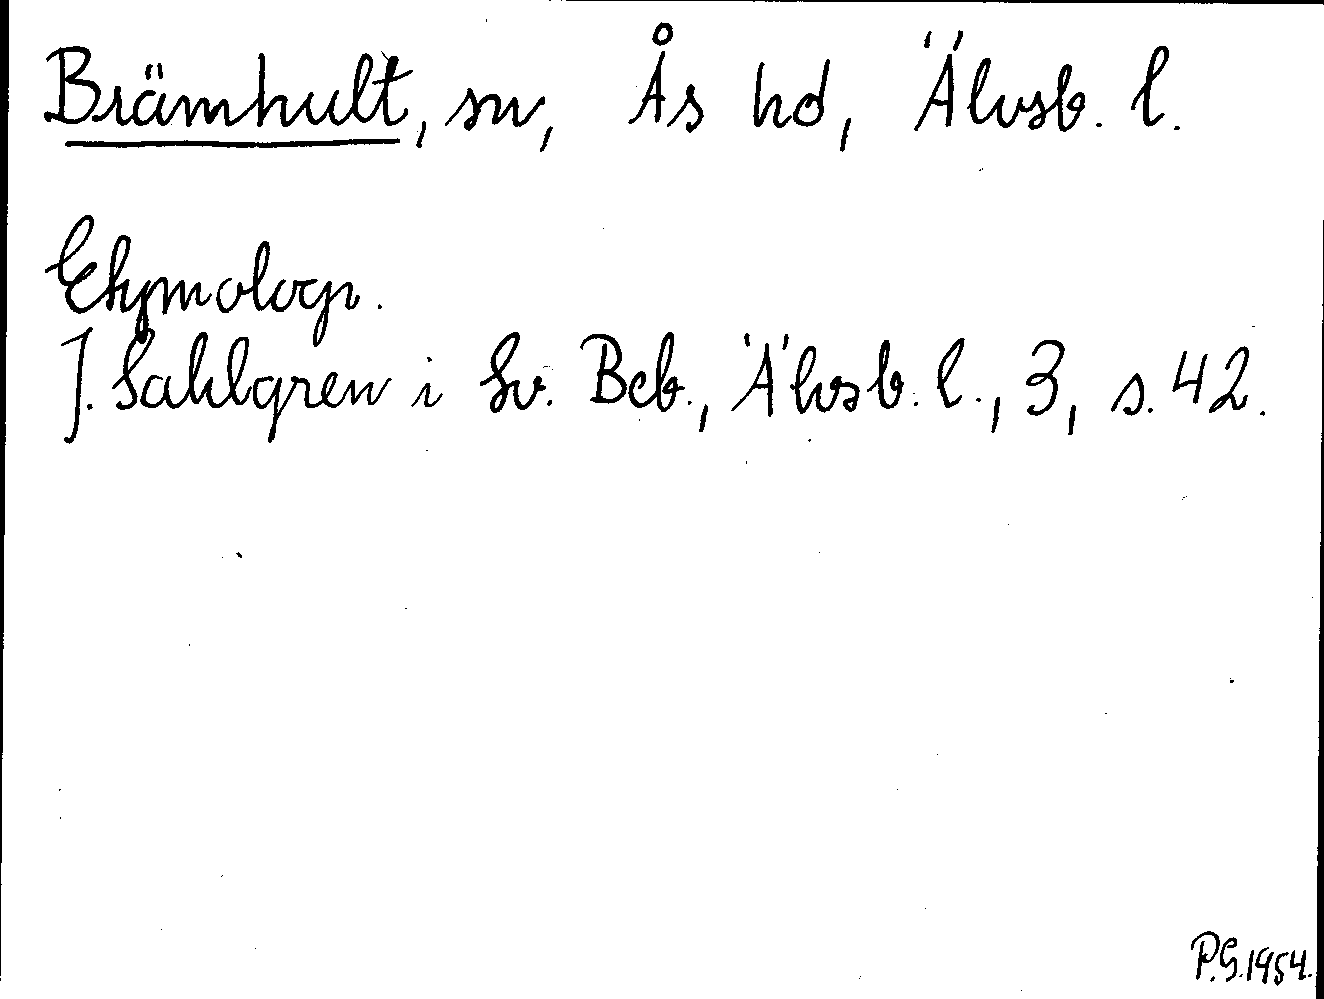 Brämhult, sn, Ås hd, Älvsb. l.
Etymologi.
J. Sahlgren i Sv. Beb., Älvsb. l., 3, s. 42.
P.G. 1954.